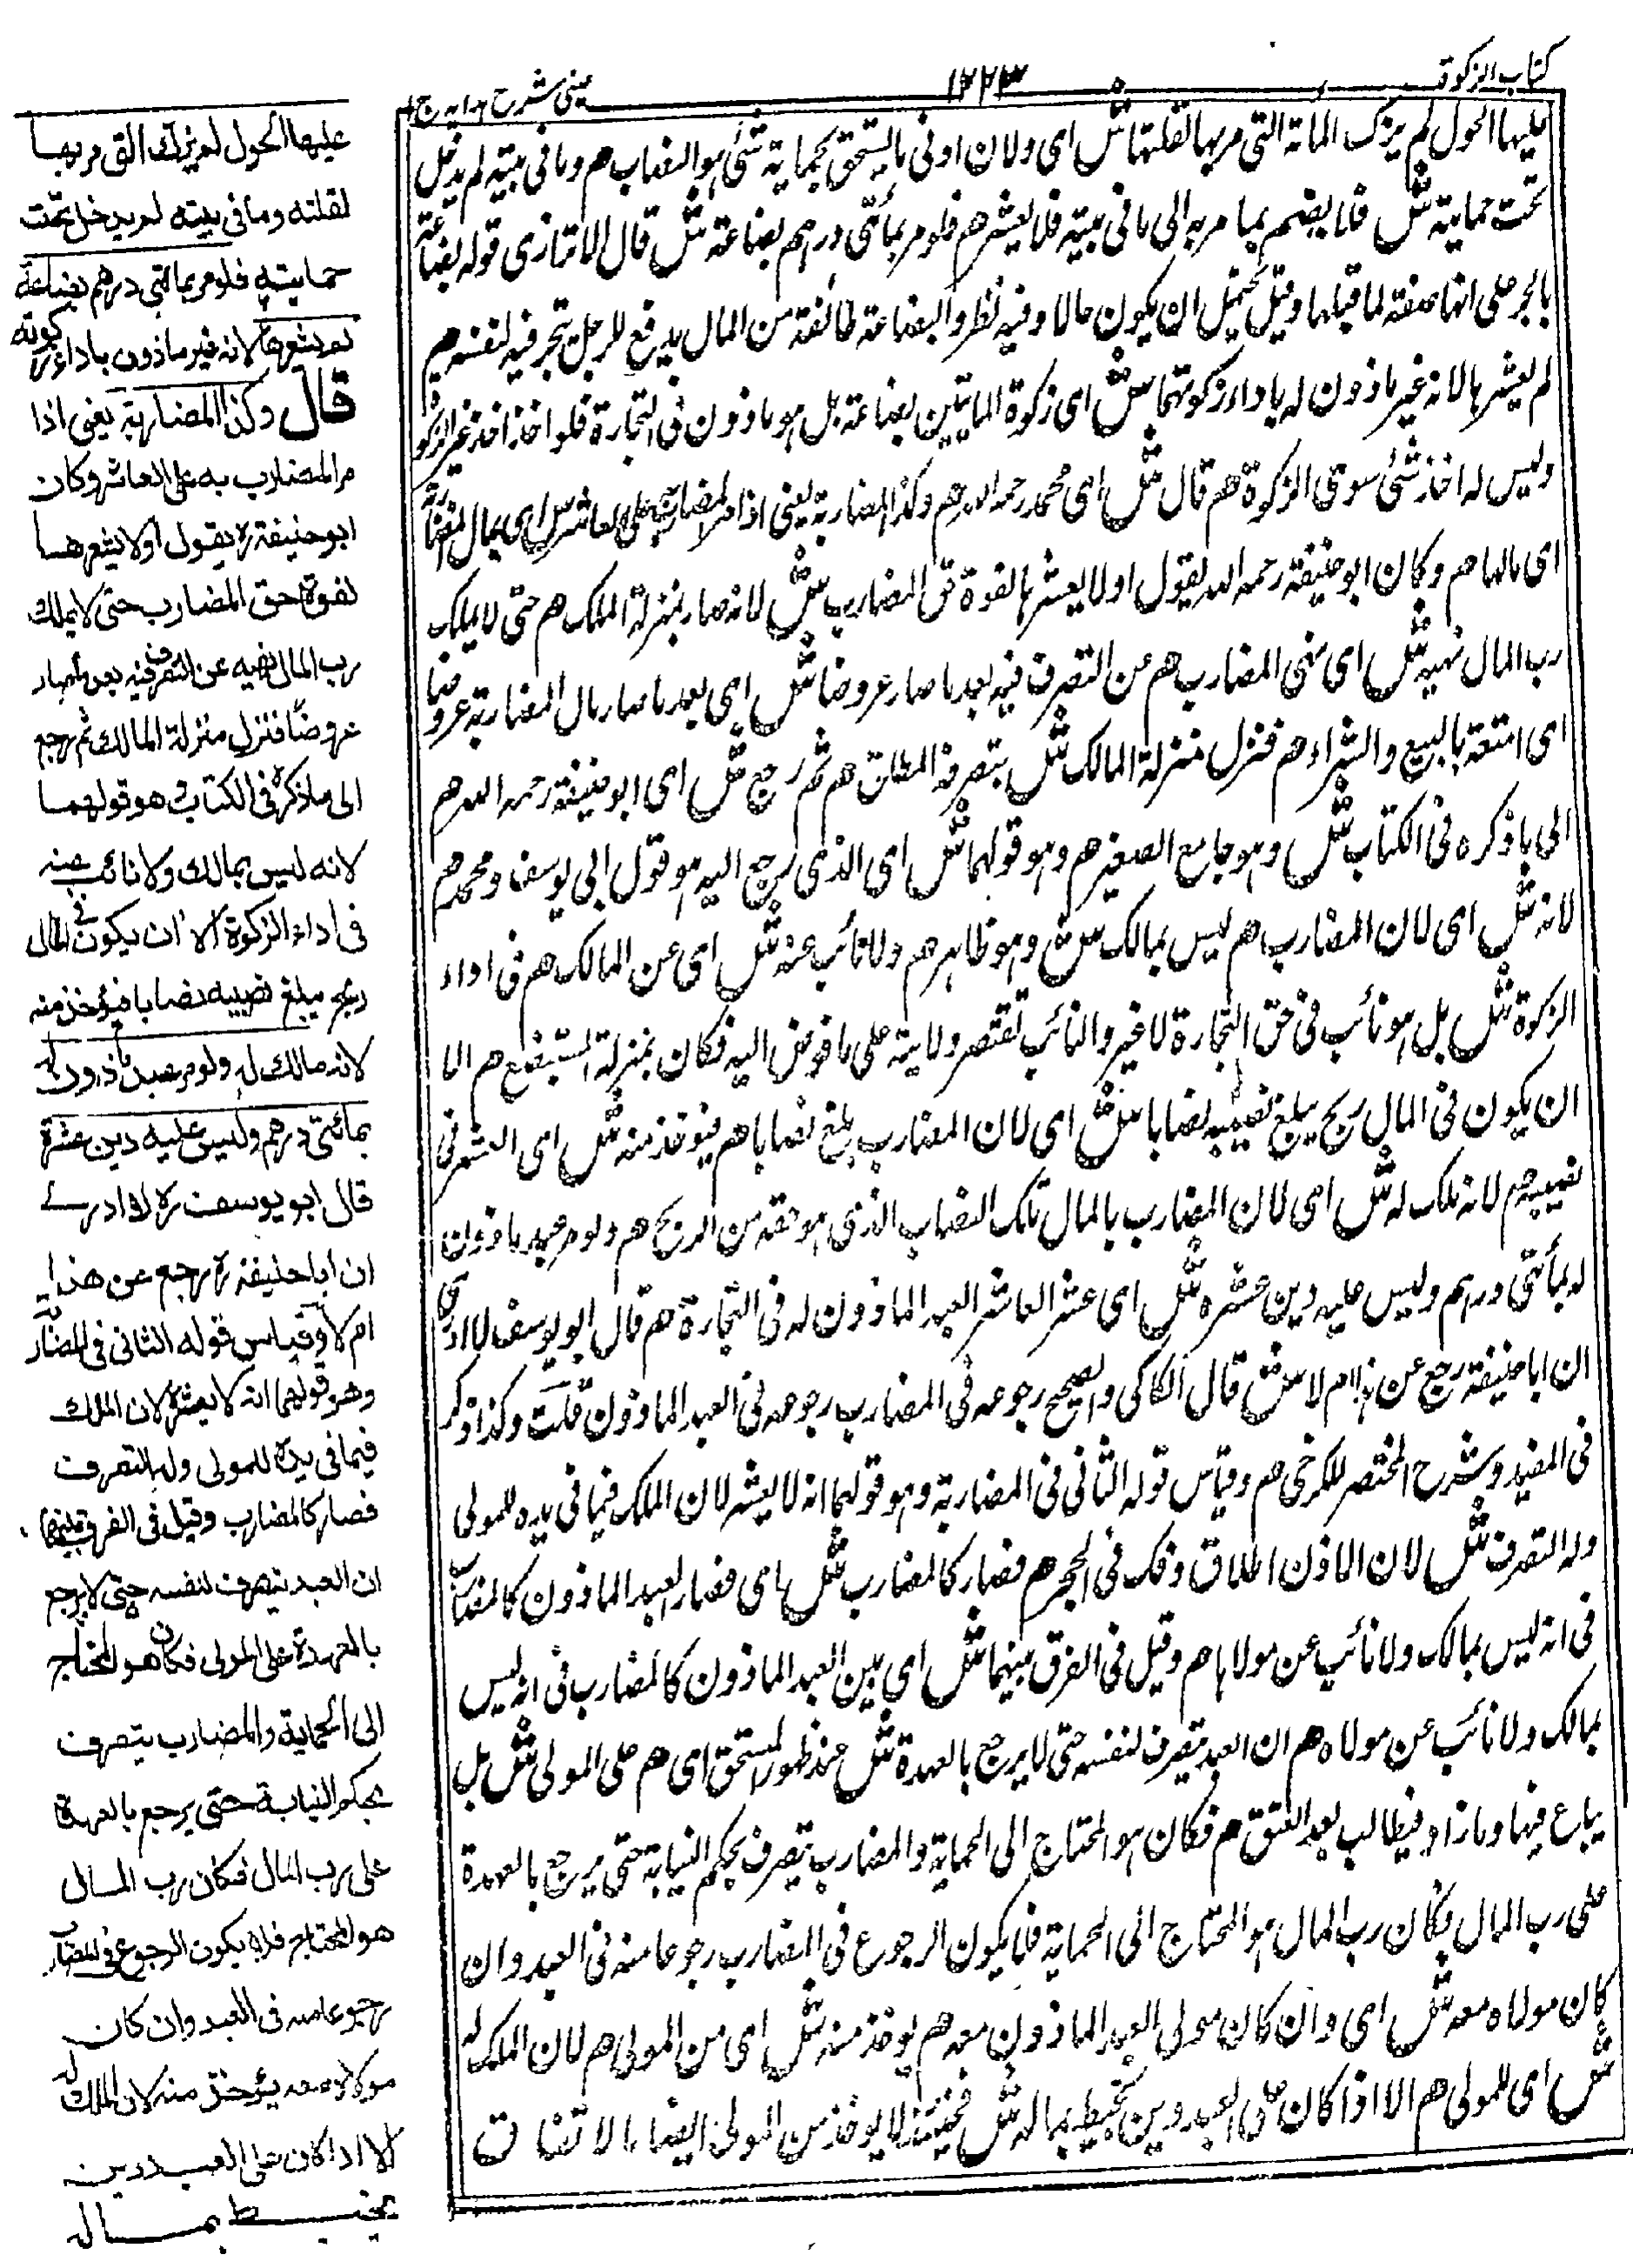 كتاب الزكوة
١٢٢٣
عينى شرح هدايه ج ١
عليها الحول لم يزك المأة التى مر بها لقلتها ش اى ولان اونى ما يستحق بحماية شئ هو النصاب هم وما فى بيته لم يدخل
تحت حماية ش فلا يضم بما مر به الى ما فى بيته فلا يعشر هم فلو مر بمأتى درهم بضاعة ش قال الاترازى قوله بضاعة
بالجر على انها صفة لما قبلها وقيل يحتمل ان يكون حالا وفيه نظر والبضاعة طائفة من المال يدفع للرجل يتجر فيه لنفسه هم
لم يعشرها لانه غير ماذون له باداء زكوتها ش اى زكوة المايتين بضاعة بل هو ماذون فى التجارة فلو اخذ اخذ غير الزكوة
وليس له اخذ شئ سوى الزكوة هم قال ش اى محمد رحمه الله هم وكذا المضاربة يعنى اذا مر المضارب به على العاشر ش اى بمال المضاربة
اى مالها هم وكان ابو حنيفة رحمه الله يقول اولا يعشرها لقوة حق المضارب ش لانه صار بمنزلة الملك هم حتى لا يملك
رب المال نهيه ش اى نهى المضارب هم عن التصرف فيه بعد ما صار عروضا ش اى بعد ما صار مال المضاربة عروضا
اى امتعة بالبيع والشراء هم فنزل منزلة المالك ش بتصرفه المطلق هم ثم رجع ش اى ابو حنيفة رحمه الله هم
الى ما ذكره فى الكتاب ش وهو جامع الصغير هم وهو قولهما ش اى الذى رجع اليه هو قول ابى يوسف ومحمد هم
لانه ش اى لان المضارب هم ليس بمالك ش وهو ظاهر هم ولا نائب عنه ش اى عن المالك هم فى اداء
الزكوة ش بل هو نائب فى حق التجارة لا غير والنائب تقتصر ولايته على ما فوض اليه فكان بمنزلة المستبضع هم الا
ان يكون فى المال ربح يبلغ نصيبه نصابا ش اى لان المضارب بلغ نصابا هم فيؤخذ منه ش اى العشر فى
نصيبه هم لانه مالك له ش اى لان المضارب بالمال مالك النصاب الذى هو حقه من الربح هم ولو مر عبد ماذون
له بمأتى درهم وليس عليه دين عشره ش اى عشر العاشر العبد الماذون له فى التجارة هم قال ابو يوسف لا ادرى
ان ابا حنيفة رجع عن هذا ام لا ش قال الكاكى والصحيح رجوعه فى المضارب رجوعه فى العبد الماذون قلت وكذا ذكر
فى المفيد وشرح المختصر للكرخى هم وقياس قوله الثانى فى المضاربة وهو قولهما انه لا يعشر لان الملك فيما فى يده للمولى
وله التصرف ش لان الاذن اطلاق وفك فى الحجر هم فصار كالمضارب ش اى فصار العبد الماذون كالمضارب
فى انه ليس بمالك ولا نائب عن مولاها هم وقيل فى الفرق بينهما ش اى بين العبد الماذون كالمضارب فى انه ليس
بمالك ولا نائب عن مولاه هم ان العبد يتصرف لنفسه حتى لا يرجع بالعهدة ش عند ظهور المستحق اى هم على المولى ش بل
يباع فيها وما زاد فيطالب بعد العتق هم فكان هو المحتاج الى الحماية والمضارب يتصرف بحكم النيابة حتى يرجع بالعهدة
على رب المال فكان رب المال هو المحتاج الى الحماية فلا يكون الرجوع فى المضارب رجوعا منه فى العبد وان
كان مولاه معه ش اى وان كان مولى العبد الماذون معه هم يوخذ منه ش اى من المولى هم لان الملك له
ش اى للمولى هم الا اذا كان على العبد دين يحيط بماله ش فحينئذ لا يوخذ من المولى ايضا بالاتفاق
عليها الحول لم يزك التى مر بها
لقلته وما فى بيته لم يدخل تحت
حمايته فلو مر بمائتى درهم بضاعة
لم يعشرها لانه غير ماذون باداء زكوته
قال وكذا المضاربة يعنى اذا
مر المضارب به على العاشر وكان
ابو حنيفة رح يقول اولا يعشرها
لقوة حق المضارب حتى لا يملك
رب المال نهيه عن التصرف فيه بعد ما صار
عروضا فنزل منزلة المالك ثم رجع
الى ما ذكره فى الكتاب وهو قولهما
لانه ليس بمالك ولا نائب عنه
فى اداء الزكوة الا ان يكون فى المال
ربح يبلغ نصيبه نصابا فيؤخذ منه
لانه مالك له ولو مر عبد ماذون له
بمائتى درهم وليس عليه دين عشره
قال ابو يوسف رح لا ادرى
ان ابا حنيفة رح رجع عن هذا
ام لا وقياس قوله الثانى فى المضاربة
وهو قولهما انه لا يعشره لان الملك
فيما فى يده للمولى وله التصرف
فصار كالمضارب وقيل فى الفرق بينهما
ان العبد يتصرف لنفسه حتى لا يرجع
بالعهدة على المولى فكان هو المحتاج
الى الحماية والمضارب يتصرف
بحكم النيابة حتى يرجع بالعهدة
على رب المال فكان رب المال
هو المحتاج فلا يكون الرجوع فى المضارب
رجوعا منه فى العبد وان كان
مولاه معه يؤخذ منه لان الملك له
الا اذا كان على العبد دين
يحيط بماله